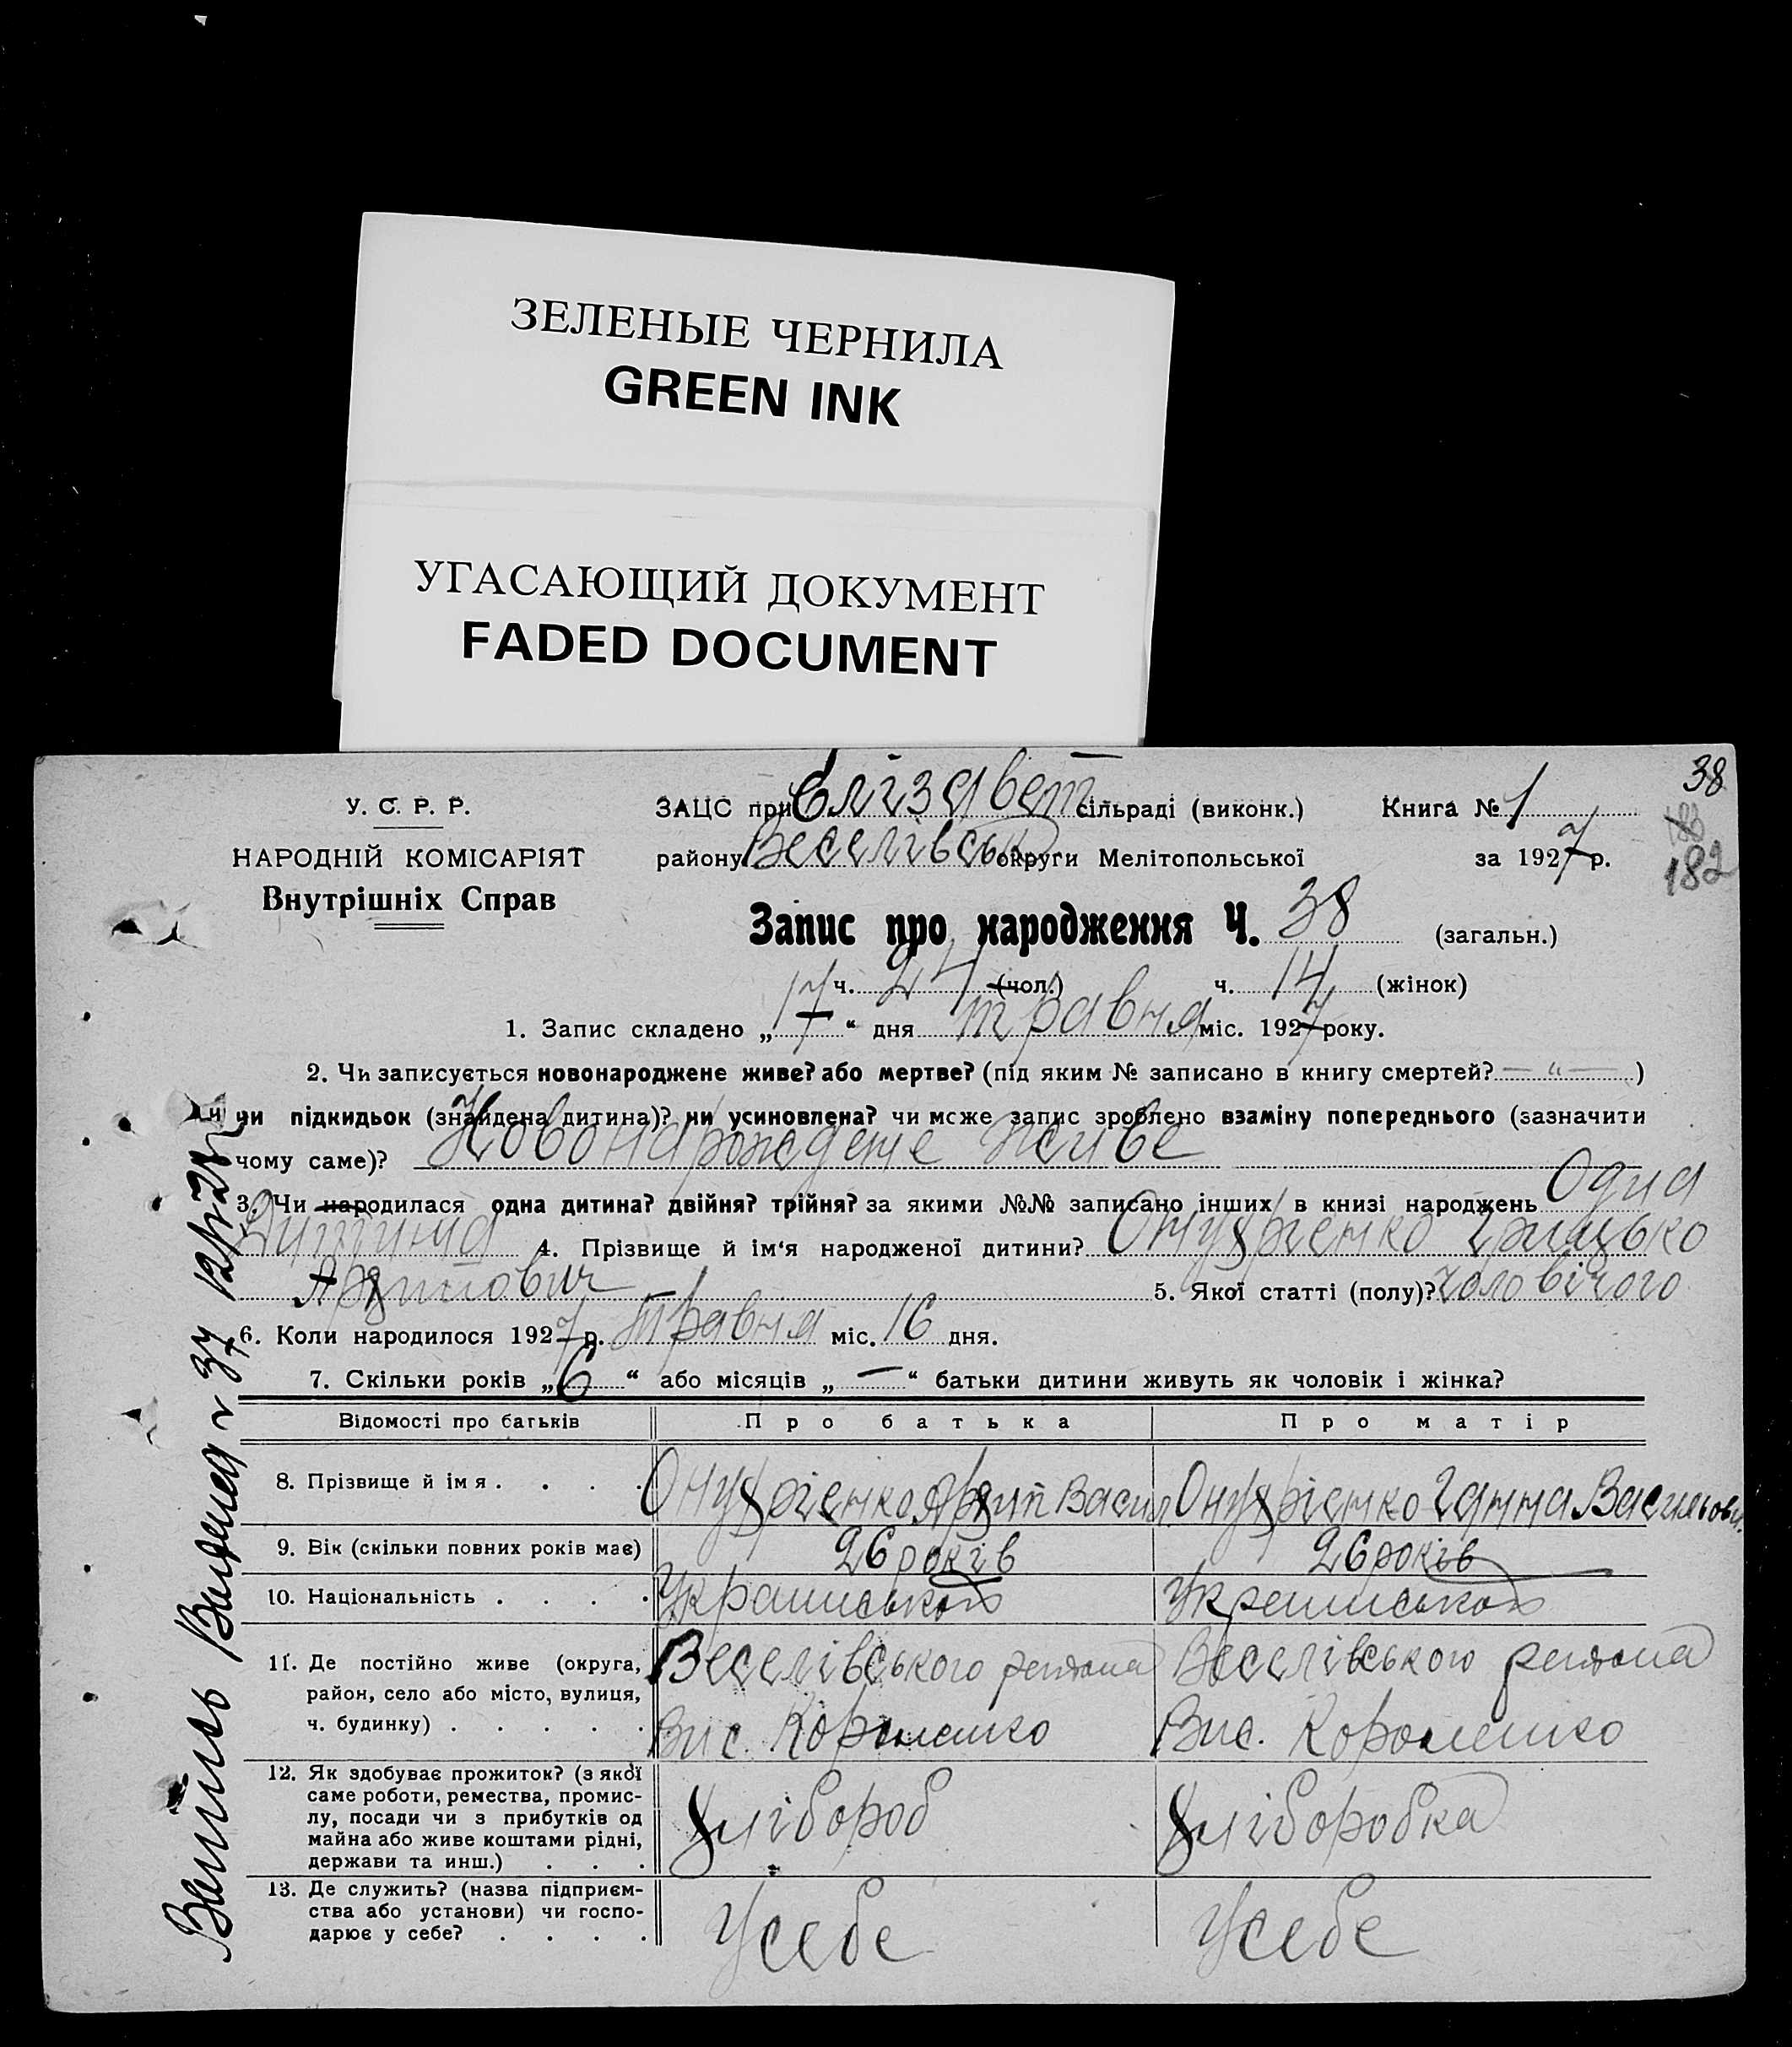 ЗЕЛЕНЫЕ ЧЕРНИЛА
GREEN INK
УГАСАЮЩИЙ ДОКУМЕНТ
FADED DOCUMENT
38
У. С. Р. Р.
ЗАЦС при Єлізавет сільраді (виконк.) Книга № 1
НАРОДНІЙ КОМІСАРІЯТ
району Веселівськ округи Мелітопольської за 1927 р.
182
Внутрішніх Справ
Запис про народження Ч. 38 (загальн.)
ч. 24 (чол.) ч. 14 (жінок)
1. Запис складено „17“ дня травня міс. 1927 року.
2. Чи записується новонароджене живе? або мертве? (під яким № записано в книгу смертей? — „ — )
чи підкидьок (знайдена дитина)? чи усиновлена? чи може запис зроблено взаміну попереднього (зазначити
чому саме)? Новонарождене живе
3. Чи народилася одна дитина? двійня? трійня? за якими №№ записано інших в книзі народжень Одна
Дитина 4. Прізвище й ім‘я народженої дитини? Онуфрієнко Грицько
Архипович 5. Якої статті (полу)? чоловічого
6. Коли народилося 1927 р. травня міс. 16 дня.
7. Скільки років „6“ або місяців „—“ батьки дитини живуть як чоловік і жінка?
Відомості про батьків Про батька Про матір
8. Прізвище й ім я . . . . Онуфрієнко Архип Васил. Онуфрієнко Ганна Васильовн.
9. Вік (скільки повних років має) 26 років 26 років
10. Національність . . . . Української Української
11. Де постійно живе (округа, Веселівського района Веселівського района
район, село або місто, вулиця,
ч. будинку) . . . . . Вис. Короленко Вис. Короленко
12. Як здобуває прожиток? (з якої
саме роботи, ремества, промис-
лу, посади чи з прибутків од хлібороб хлібороб­ка
майна або живе коштами рідні,
держави та инш.) . . .
13. Де служить? (назва підприєм-
ства або установи) чи госпо- У себе У себе
дарює у себе? . . . .